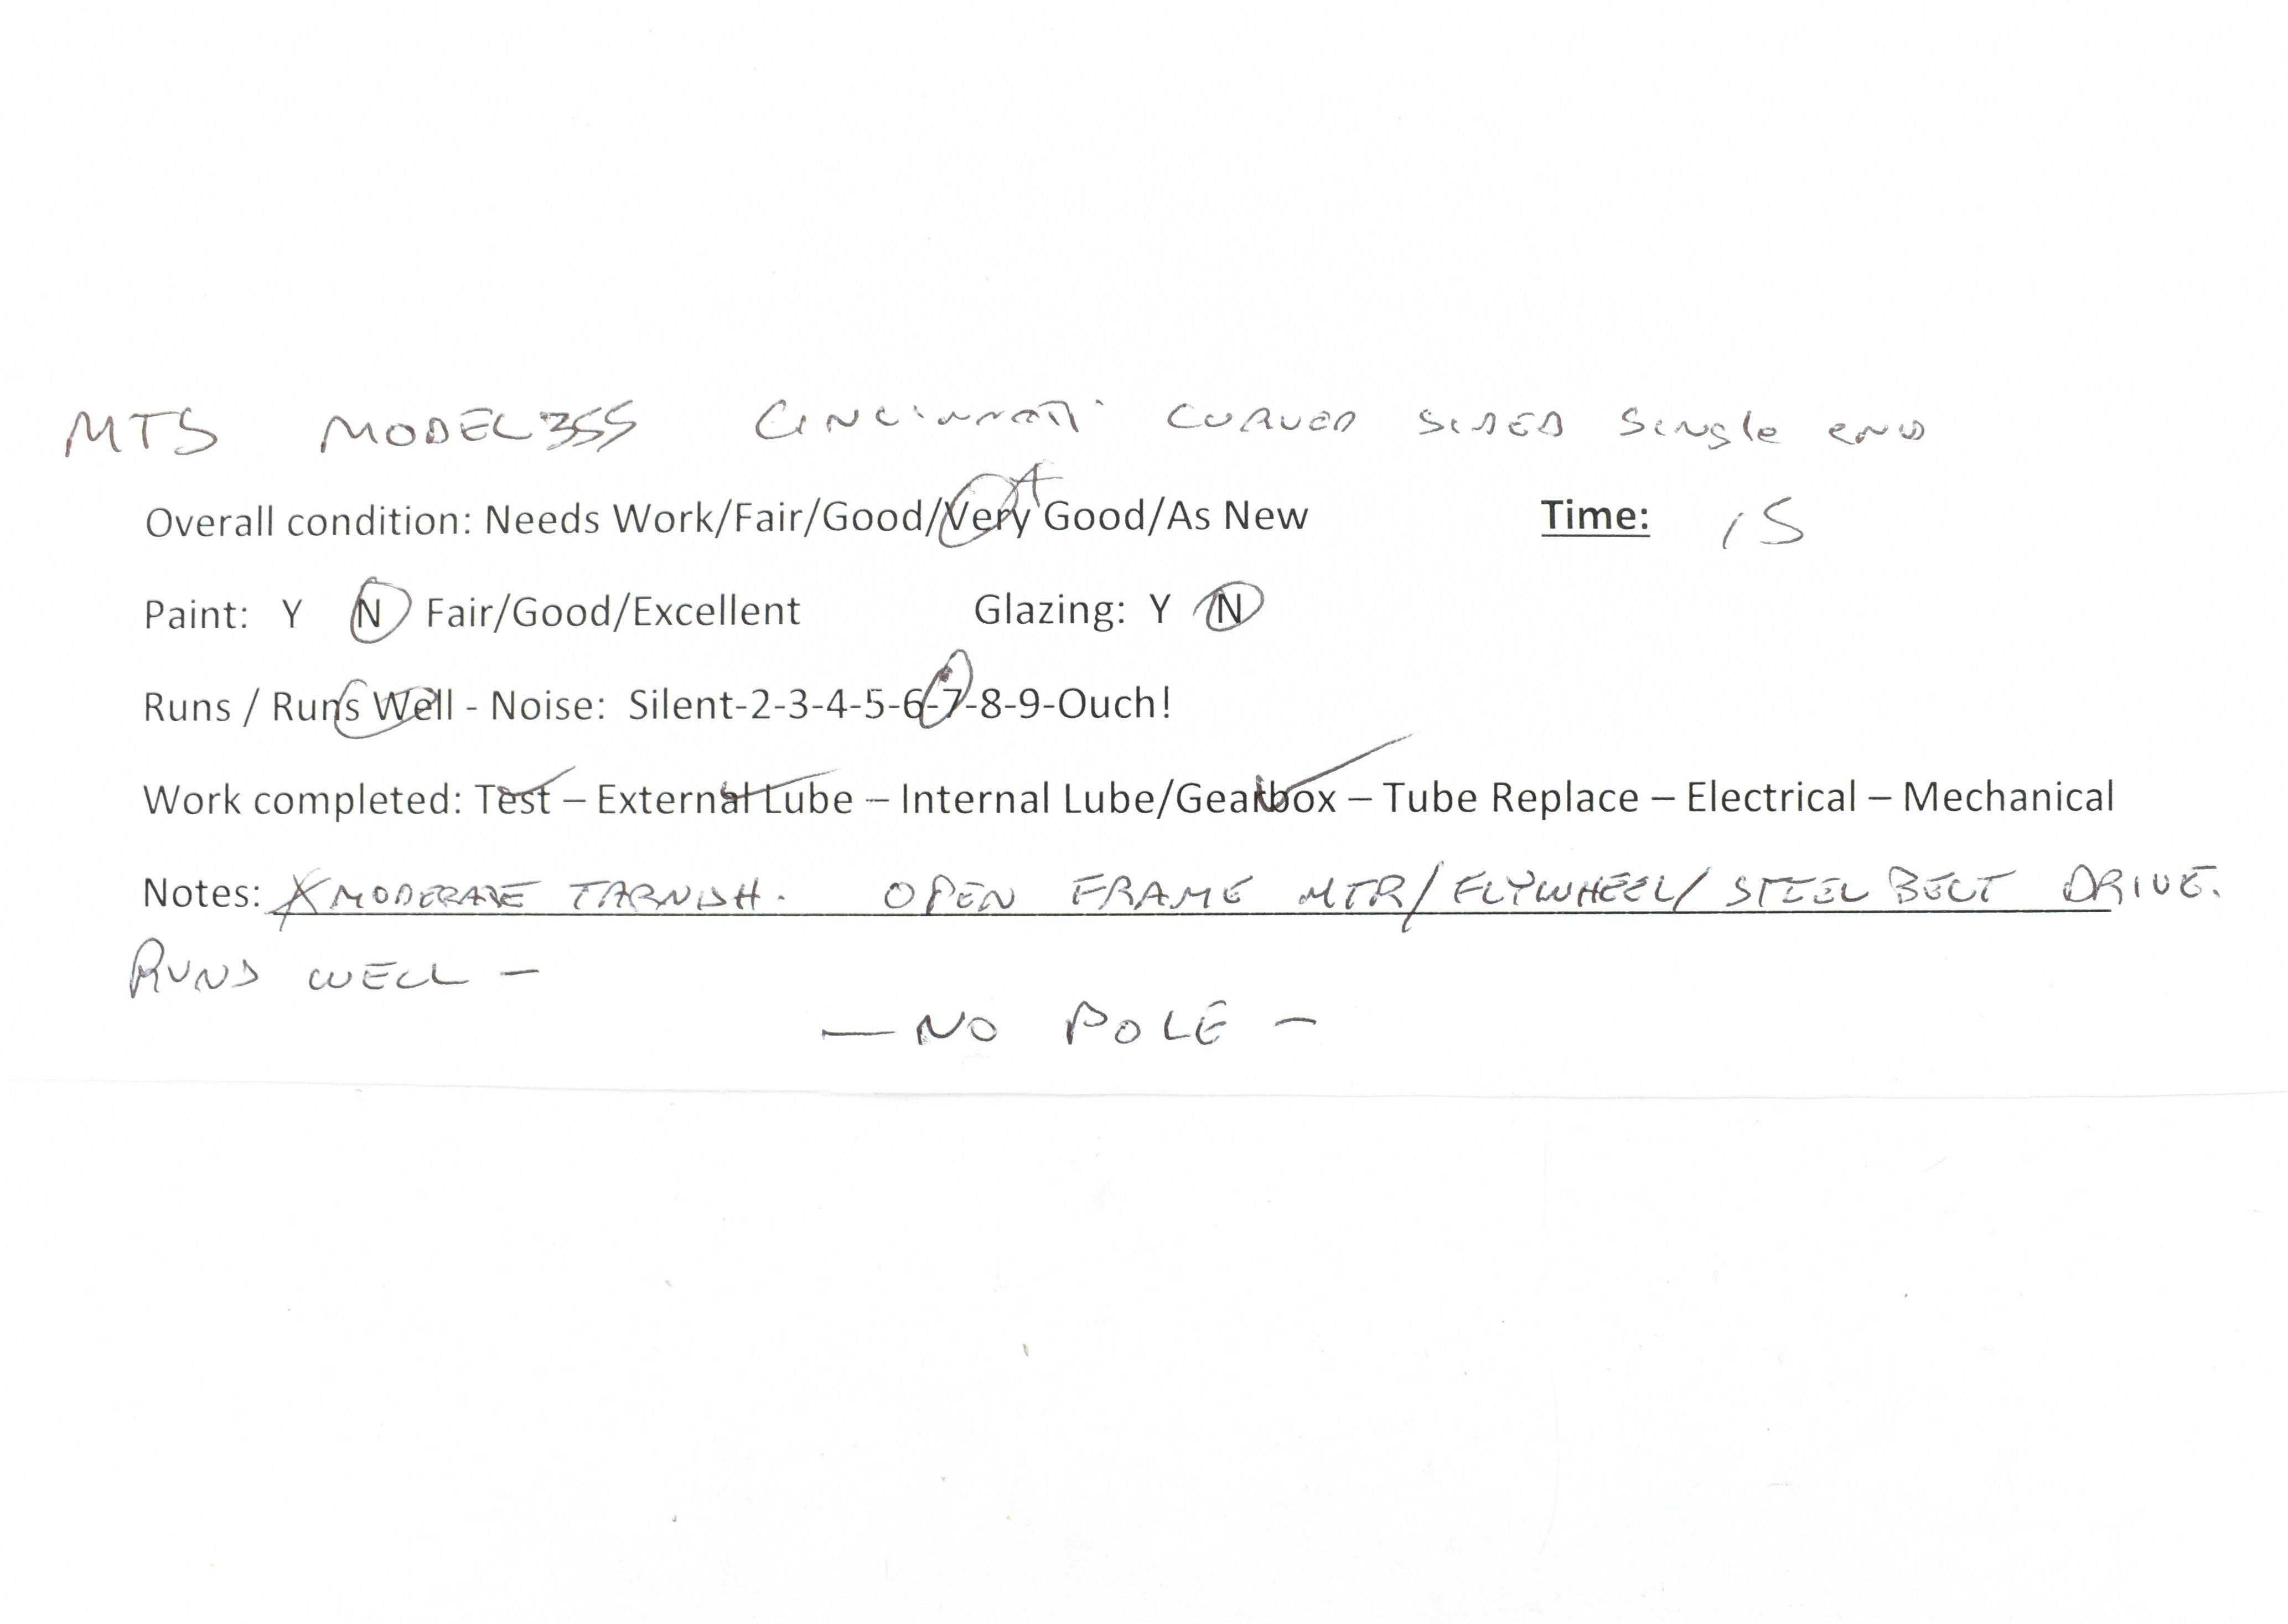 MTS MODEL 355 Cincinnati CURVED SIDED Single END
Overall condition: Needs Work/Fair/Good/Very Good/As New Time: 15
Paint: Y N Fair/Good/Excellent Glazing: Y N
Runs / Runs Well - Noise: Silent-2-3-4-5-6-7-8-9-Ouch!
Work completed: Test – External Lube – Internal Lube/Gearbox – Tube Replace – Electrical – Mechanical
Notes: * MODERATE TARNISH. OPEN FRAME MTR/FLYWHEEL/STEEL BELT DRIVE.
RUNS WELL –
— NO POLE –